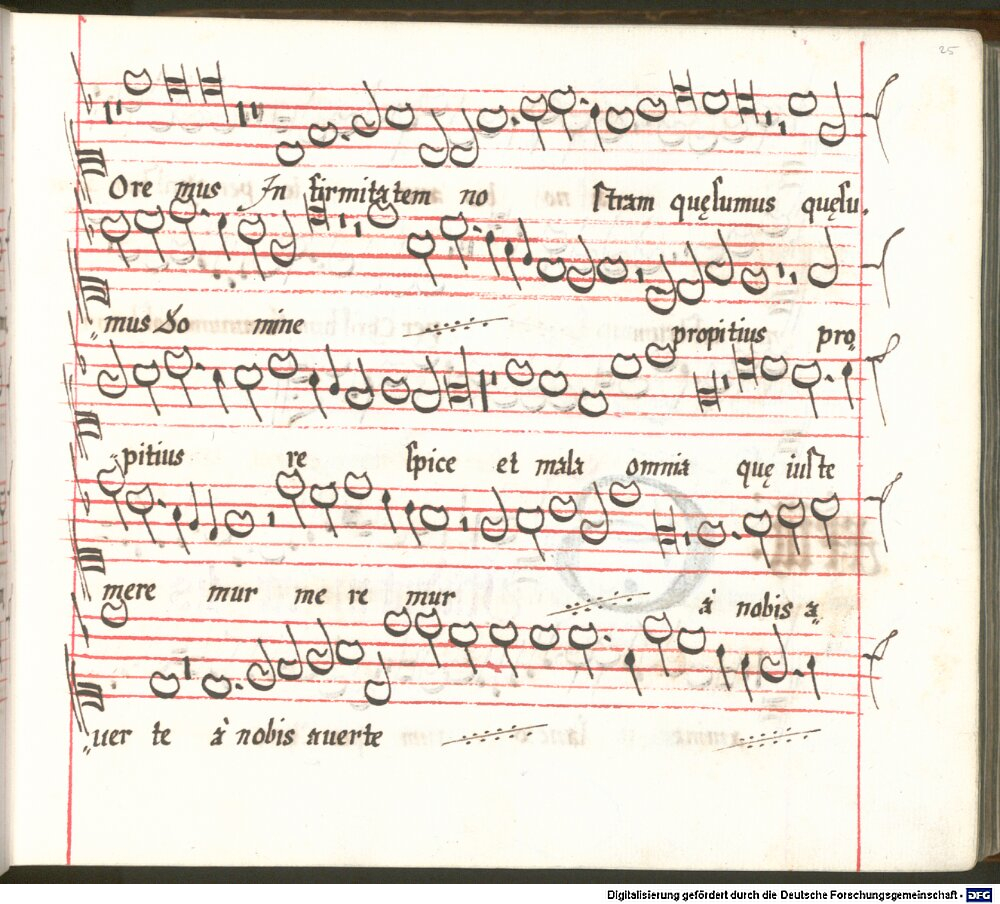 25
Ore mus In firmitatem no ſtram quęſumus quęſu.
mus Do mine propitius pro
pitius re ſpice et mala omnia quę iuſte
mere mur me re mur à nobis a
uer te à nobis auerte
Digitalisierung gefördert durch die Deutsche Forschungsgemeinschaft - DFG